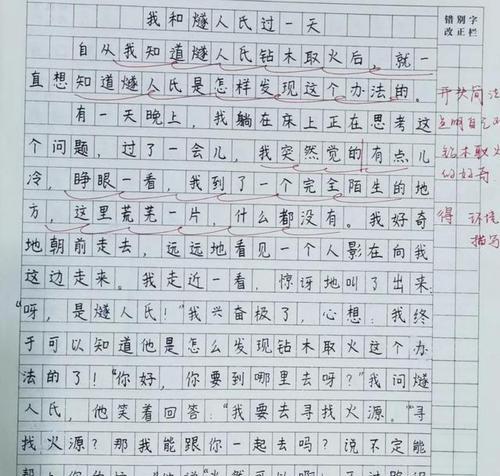 我和燧人氏过一天
错别字
改正栏
自从我知道燧人氏钻木取火后，就一
直想知道燧人氏是怎样发现这个办法的。
开头简洁
有一天晚上，我躺在床上正在思考这
点明自己对
个问题，过了一会儿，我突然觉的有点儿
钻木取火
冷，睁眼一看，我到了一个完全陌生的地
的好奇
方，这里荒芜一片，什么都没有。我好奇
得 环境
地朝前走去，远远地看见一个人影在向我
描写
这边走来。我走近一看，惊讶地叫了出来：
“呀，是燧人氏！”我兴奋极了，心想：我终
于可以知道他是怎么发现钻木取火这个办
法的了！“你好，你要到哪里去呀？”我问燧
人氏，他笑着回答：“我要去寻找火源。”“寻
找火源？那我能跟你一起去吗？说不定能